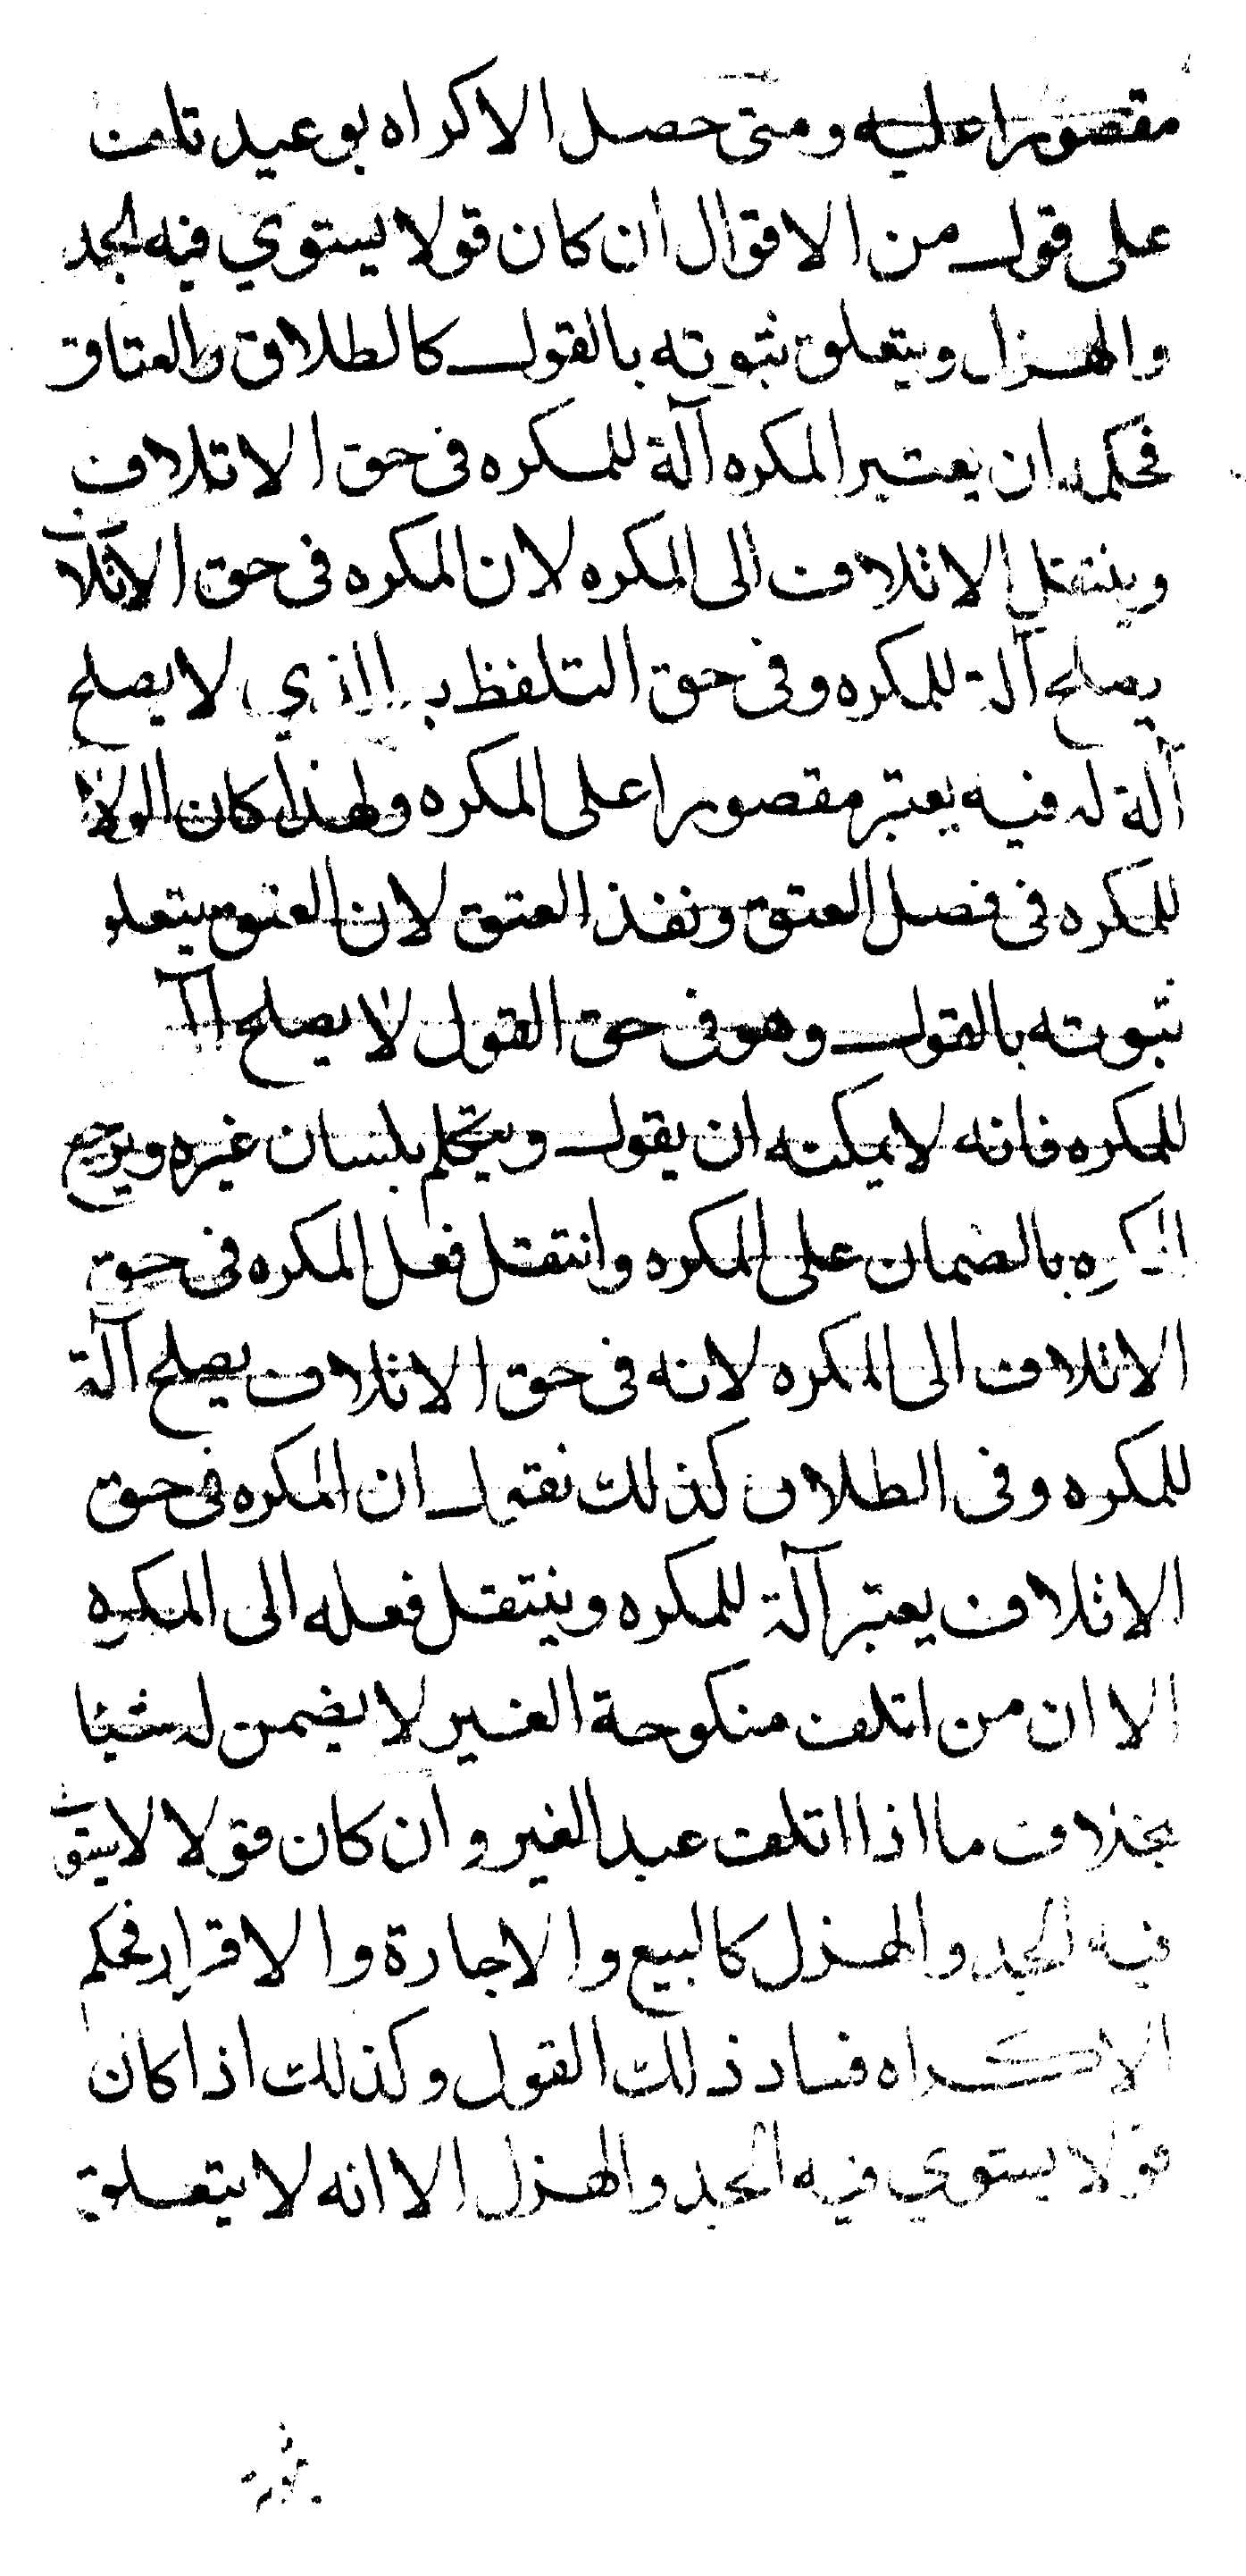 مقصورا عليه ومتى حصل الاكراه بوعيد تلف
على قول من الاقوال ان كان قولا يستوي فيه الجد
والهزل ويتعلق ثبوته بالقول كالطلاق والعتاق
فحكمه ان يعتبر المكره آلة للمكره فى حق الاتلاف
وينتقل الاتلاف الى المكره لان المكره فى حق الاتلاف
يصلح آلة للمكره وفى حق التلفظ الذي لا يصلح
آلة له فيه يعتبر مقصورا على المكره ولهذا كان الولا
للمكره فى فصل العتق ونفذ العتق لان العتق يتعلق
ثبوته بالقول وهو فى حق القول لا يصلح آلة
للمكره فانه لا يمكنه ان يقول ويتكلم بلسان غيره ويرجع
المكره بالضمان على المكره وانتقل فعل المكره فى حق
الاتلاف الى المكره لانه فى حق الاتلاف يصلح آلة
للمكره وفى الطلاق كذلك نقول ان المكره فى حق
الاتلاف يعتبر آلة للمكره وينتقل فعله الى المكره
الا ان من اتلف منكوحة الغير لا يضمن له شيئا
بخلاف ما اذا اتلف عبد الغير وان كان قولا لا يستوي
فيه الجد والهزل كالبيع والاجارة والاقرار فحكم
الاكراه فساد ذلك القول وكذلك اذا كان
قولا يستوي فيه الجد والهزل الا انه لا يتعلق